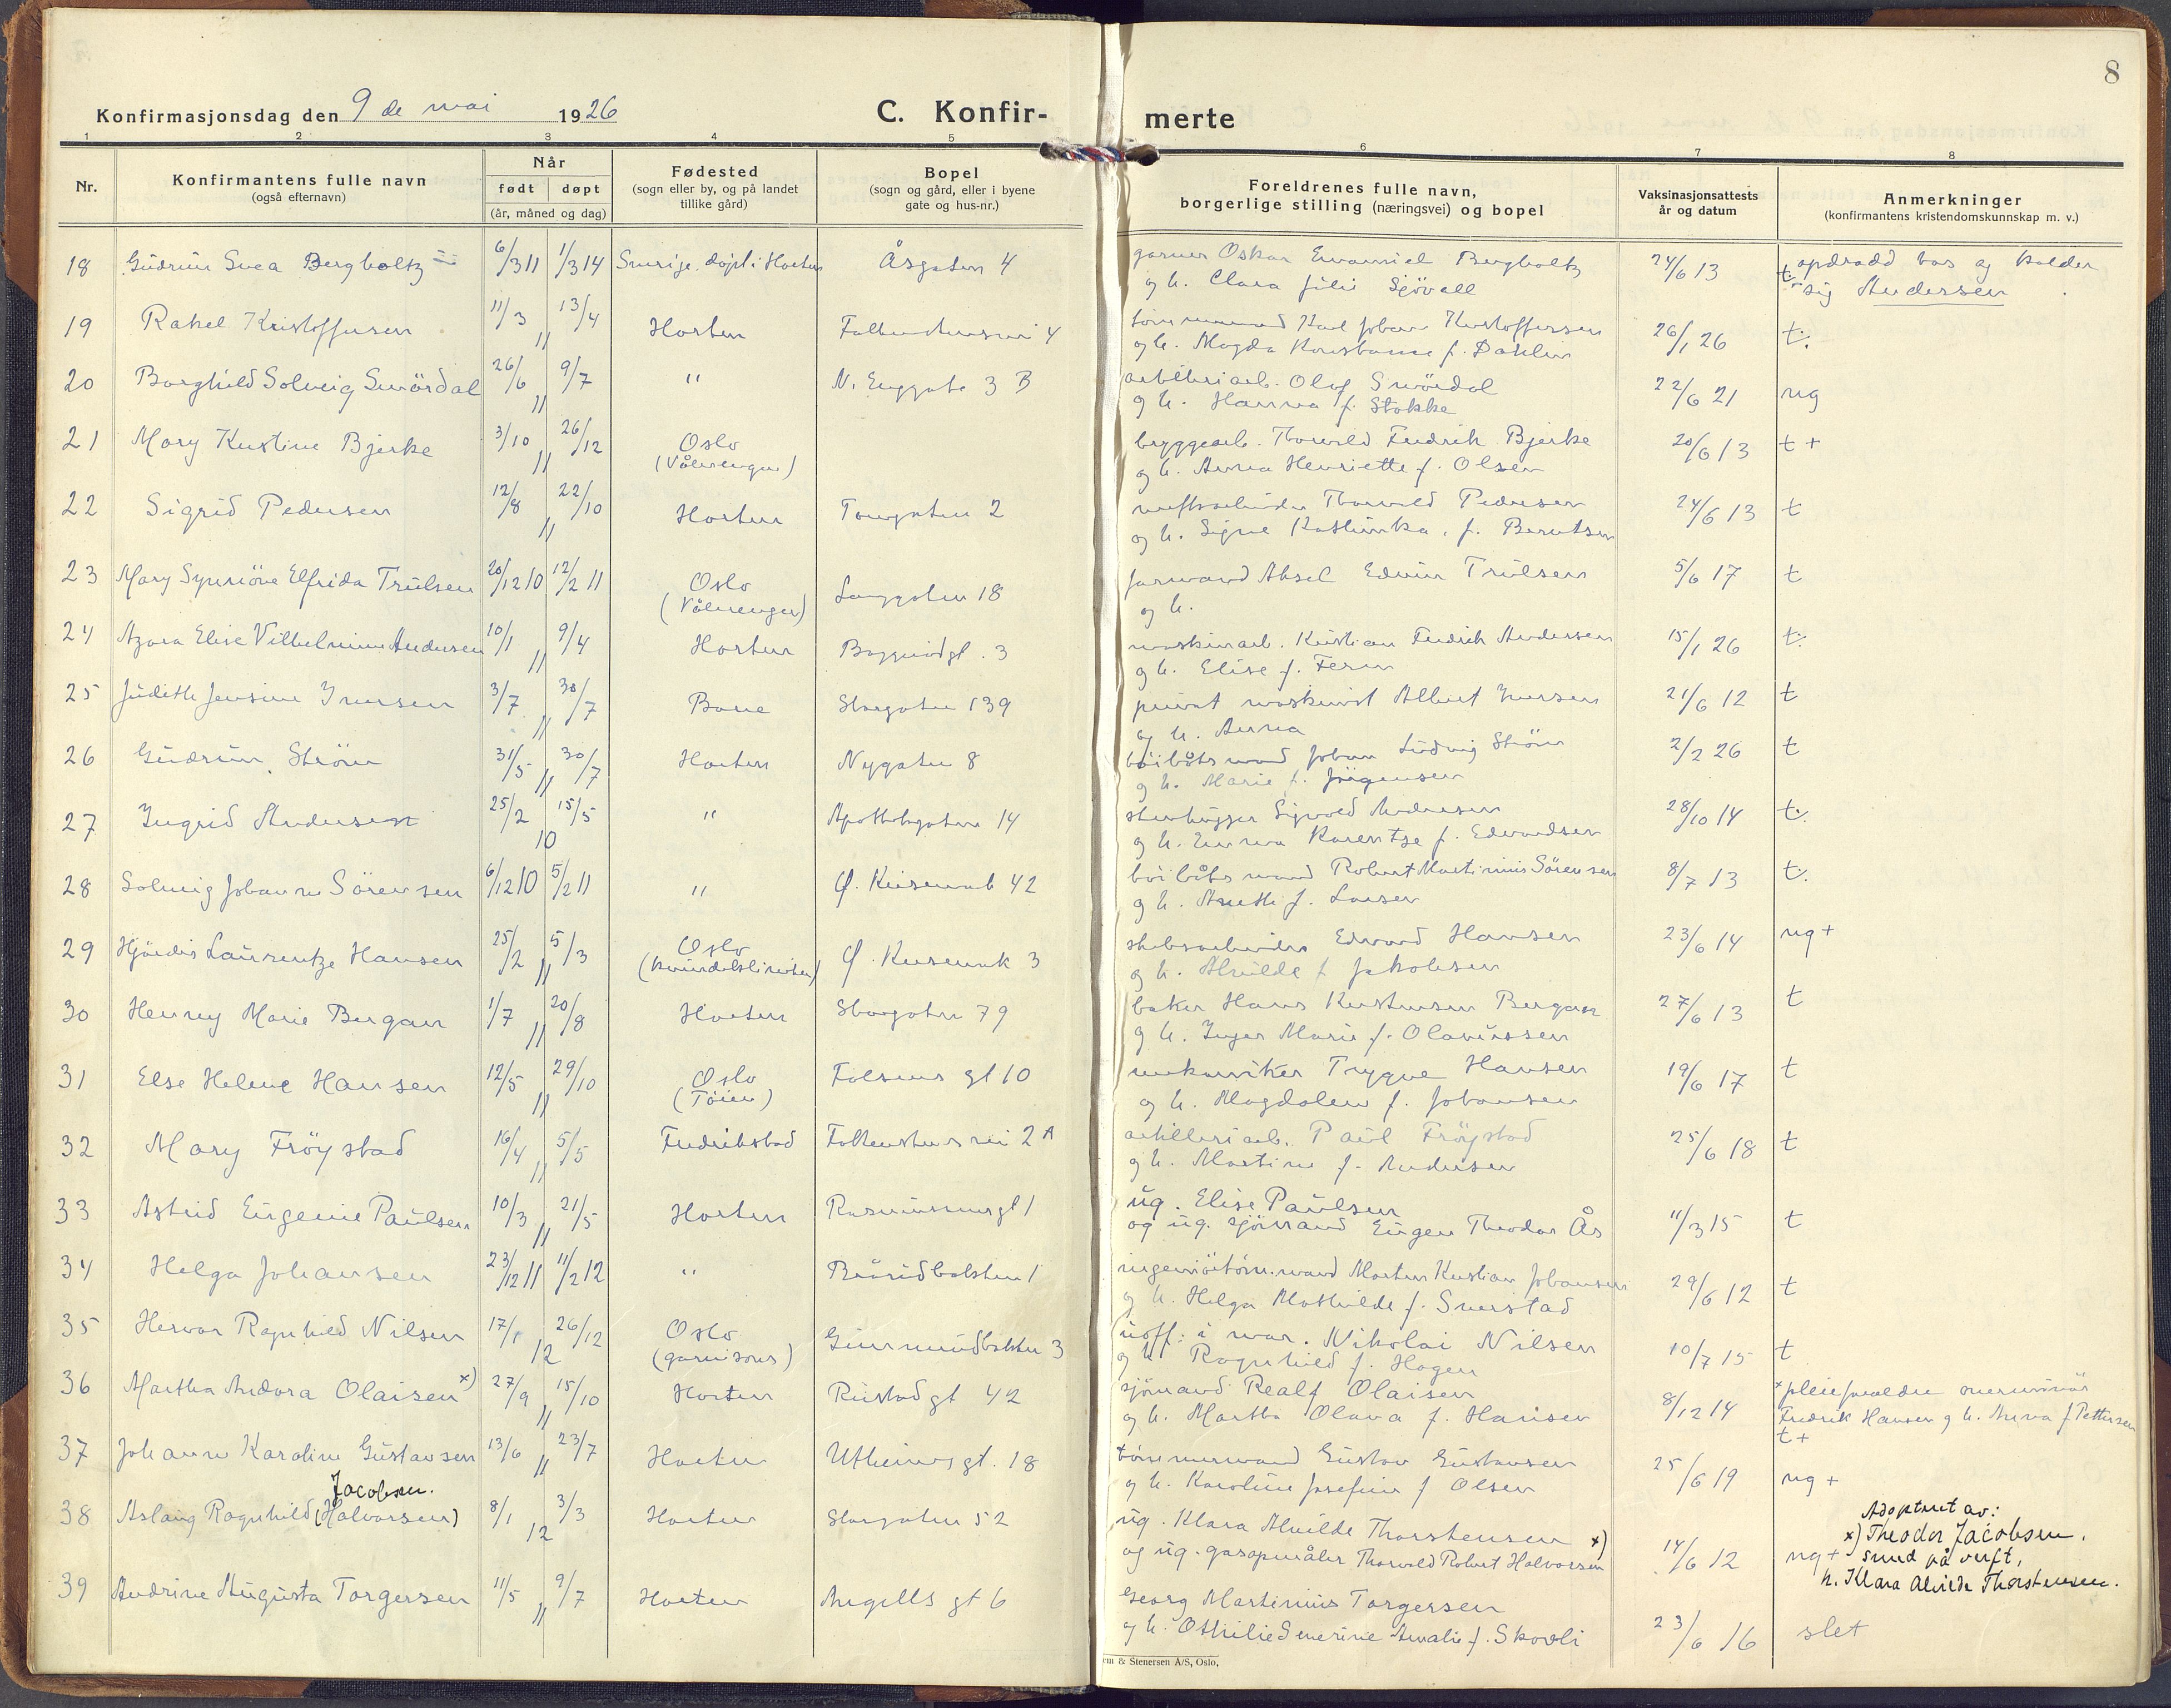 8
Konfirmasjonsdag den 9 de mai 1926 C. Konfir- merte
1 2 3 4 5 6 7 8
Nr.
Konfirmantens fulle navn
(også efternavn)
Når
født døpt
(år, måned og dag)
Fødested
(sogn eller by, og på landet
tillike gård)
Bopel
(sogn og gård, eller i byene
gate og hus-nr.)
Foreldrenes fulle navn,
borgerlige stilling (næringsvei) og bopel
Vaksinasjonsattests
år og datum
Anmerkninger
(konfirmantens kristendomskunnskap m. v.)
18 Gudrun Svea Bergholtz 6/3 11 1/3 14 Sverige, døpt i Horten Åsgaten 4 garver Oskar Emanuel Bergholtz 24/6 13 opdradd hos og kalder
og h. Clara Julie Sjövall t. sig Andersen
19 Rakel Kristoffersen 11/3 13/4 11 Horten 4 Karl Johan Kristoffersen 26/1 26 t.
og h. Magda Konstanse f. Dahlin
20 Borghild Solveig Smördal 26/6 9/7 11 " N. Enggate 3 B artilleriarb. Olaf Smördal 22/6 21 mg
og h. Hanna f. Stokke
21 Mary Kristine Bjerke 3/10 26/12 11 Oslo (Vålerengen) bryggearb. Thorvald Fredrik Bjerke 20/6 13 t +
og h. Anna Henriette f. Olsen
22 Sigrid Pedersen 12/8 22/10 11 Horten Tougaten 2 verftsarbeider Thorvald Pedersen 24/6 13 t
og h. Signe Kathinka, f. Berntsen
23 Mary Synnöve Elfrida Trulsen 20/12 10 12/2 11 Oslo (Vålerengen) Langgaten 18 Aksel Edvin Trulsen 5/6 17 t
og h.
24 Azora Elise Vilhelmine Andersen 10/1 9/4 11 Horten 3 maskinarb. Kristian Fredrik Andersen 15/1 26 t.
og h. Elise f. Fern
25 Judith Jensine Iversen 3/7 30/7 11 Borre Storgaten 139 privat maskinist Albert Iversen 21/6 12 t
og h. Anna
26 Gudrun Ström 31/5 30/7 11 Horten Nygaten 8 Johan Ludvig Ström 2/2 26 t
og h. Marie f. Jörgensen
27 Ingrid Andersen 25/2 15/5 10 " Apothekgaten 14 stenhugger Sigvald Andersen 28/10 14 t.
og h. Emma Karentse f. Edvardsen
28 Solveig Johanne Sörensen 6/12 10 5/2 11 " 42 Robert Martinius Sörensen 8/7 13 t.
og h. Anethe f. Larsen
29 Hjördis Laurentze Hansen 25/2 5/3 11 Oslo 3 Edvard Hansen 23/6 14 mg +
og h. Alvilde f. Jakobsen
30 Henny Marie Bergan 1/7 20/8 11 Horten Storgaten 79 baker Hans Kristensen Bergan 27/6 13 t
og h. Inger Marie f. Olavessen
31 Else Helene Hansen 12/5 29/10 11 Oslo (Töien) Falsens gt 10 mekaniker Trygve Hansen 19/6 17 t
og h. Magdalene f. Johansen
32 Mary Fröystad 16/4 5/5 11 Fredrikstad 2 A artilleriarb. Paul Fröystad 25/6 18 t
og h. Martine f. Andersen
33 Astrid Eugenie Paulsen 10/3 21/5 11 Horten 1 ug. Elise Paulsen
og ug. sjömand Eugen Theodor Ås 11/3 15 t
34 Helga Johansen 23/12 11 11/2 12 " 1 Morten Kristian Johansen 29/6 12 t
og h. Helga Mathilde f. Sverstad
35 Hervor Ragnhild Nilsen 17/1 26/12 12 Oslo (garnisons) 3 uoff. i mar. Nikolai Nilsen 10/7 15 t
og h. Ragnhild f. Hagen
36 Martha Andora Olaisen x) 27/9 15/10 11 Horten Rustad gt 42 sjömand Realf Olaisen 8/12 14 x pleieforældre
og h. Martha Olava f. Hansen Fredrik Hansen og h. Anna f. Pettersen
t +
37 Johanne Karoline Gustavsen 13/6 23/7 11 Horten Utheims gt. 18 tömmermand Gustav Gustavsen 25/6 19 mg +
og h. Karoline Josefine f Olsen
Jacobsen.
38 Aslaug Ragnhild (Halvorsen) 8/1 3/3 12 Horten Storgaten 52 ug. Klara Alvilde Thorstensen x) 14/6 12 mg +
og ug. gasopmåler Thorvald Robert Halvorsen
Adoptert av:
x) Theodor Jacobsen.
smed på verft,
h. Klara Alvilde Thorstensen.
39 Andrine Augusta Torgersen 11/5 9/7 11 Horten Angells gt 6 Georg Martinius Torgersen 23/6 16 slet
og h. Othilie Severine Amalie f. Skovli
& Stenersen A/S, Oslo.